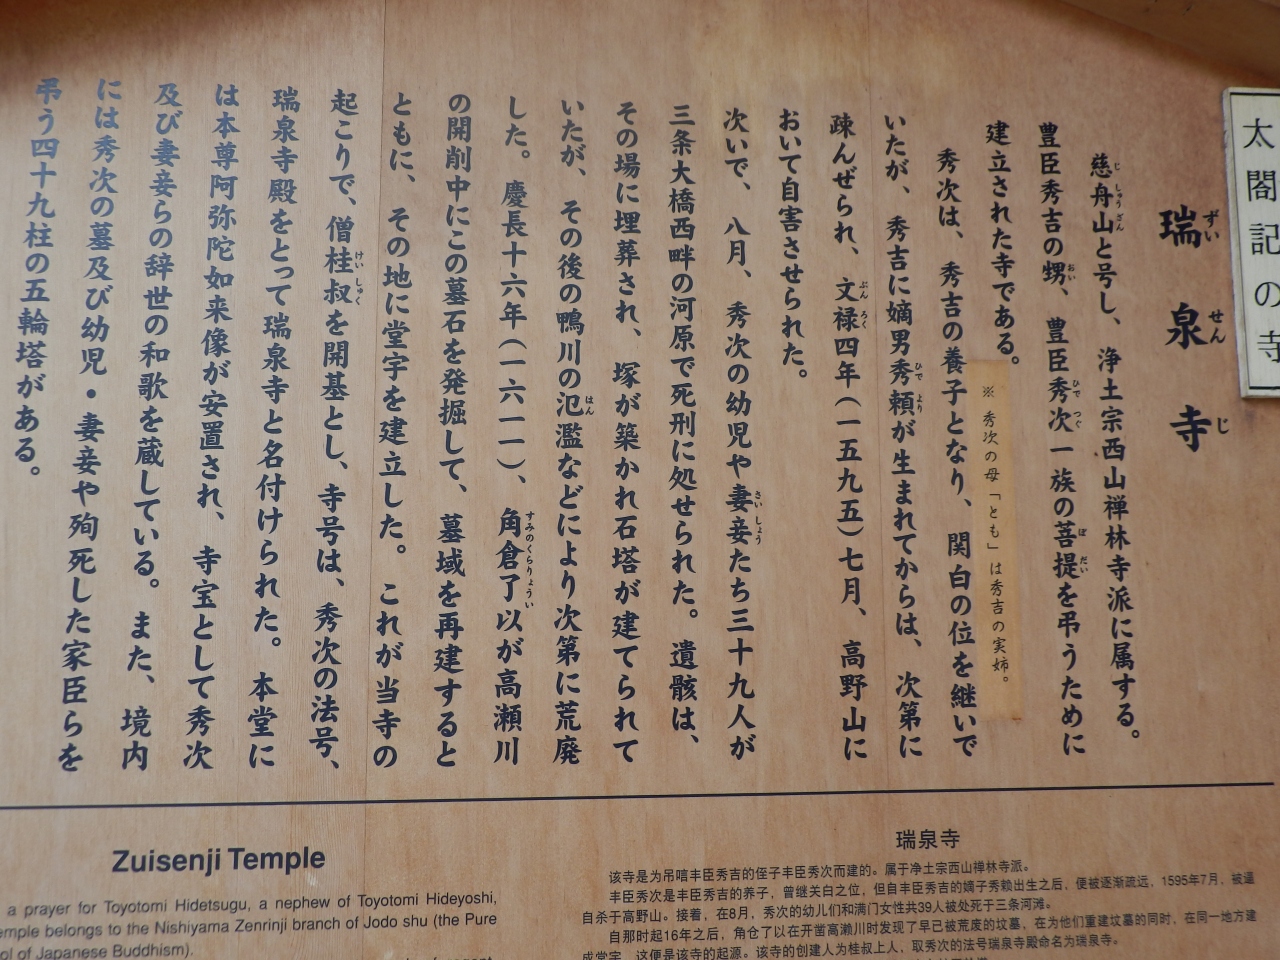 太閤記の寺
瑞泉寺
ずいせんじ
慈舟山と号し、浄土宗西山禅林寺派に属する。
じしゅうざん
豊臣秀吉の甥、豊臣秀次一族の菩提を弔うために
おい
ひでつぐ
ぼだい
建立された寺である。
※秀次の母「とも」は秀吉の実姉。
秀次は、秀吉の養子となり、関白の位を継いで
いたが、秀吉に嫡男秀頼が生まれてからは、次第に
ひでより
疎んぜられ、文禄四年(一五九五)七月、高野山に
ぶんろく
おいて自害させられた。
次いで、八月、秀次の幼児や妻妾たち三十九人が
さいしょう
三条大橋西畔の河原で死刑に処せられた。遺骸は、
その場に埋葬され、塚が築かれ石塔が建てられて
いたが、その後の鴨川の氾濫などにより次第に荒廃
はん
した。慶長十六年(一六一一)、角倉了以が高瀬川
すみのくらりょうい
の開削中にこの墓石を発掘して、墓域を再建すると
ともに、その地に堂宇を建立した。これが当寺の
起こりで、僧桂叔を開基とし、寺号は、秀次の法号、
けいしゅく
瑞泉寺殿をとって瑞泉寺と名付けられた。本堂に
は本尊阿弥陀如来像が安置され、寺宝として秀次
及び妻妾らの辞世の和歌を蔵している。また、境内
には秀次の墓及び幼児・妻妾や殉死した家臣らを
弔う四十九柱の五輪塔がある。
Zuisenji Temple
a prayer for Toyotomi Hidetsugu, a nephew of Toyotomi Hideyoshi,
emple belongs to the Nishiyama Zenrinji branch of Jodo shu (the Pure
ol of Japanese Buddhism).
瑞泉寺
该寺是为吊唁丰臣秀吉的侄子丰臣秀次而建的。属于净土宗西山禅林寺派。
丰臣秀次是丰臣秀吉的养子，曾继关白之位，但自丰臣秀吉的嫡子秀赖出生之后，便被逐渐疏远，1595年7月，被逼
自杀于高野山。接着，在8月，秀次的幼儿们和满门女性共39人被处死于三条河滩。
自那时起16年之后，角仓了以在开凿高濑川时发现了早已被荒废的坟墓，在为他们重建坟墓的同时，在同一地方建
成堂宇，这便是该寺的起源。该寺的创建人为桂叔上人，取秀次的法号瑞泉寺殿命名为瑞泉寺。